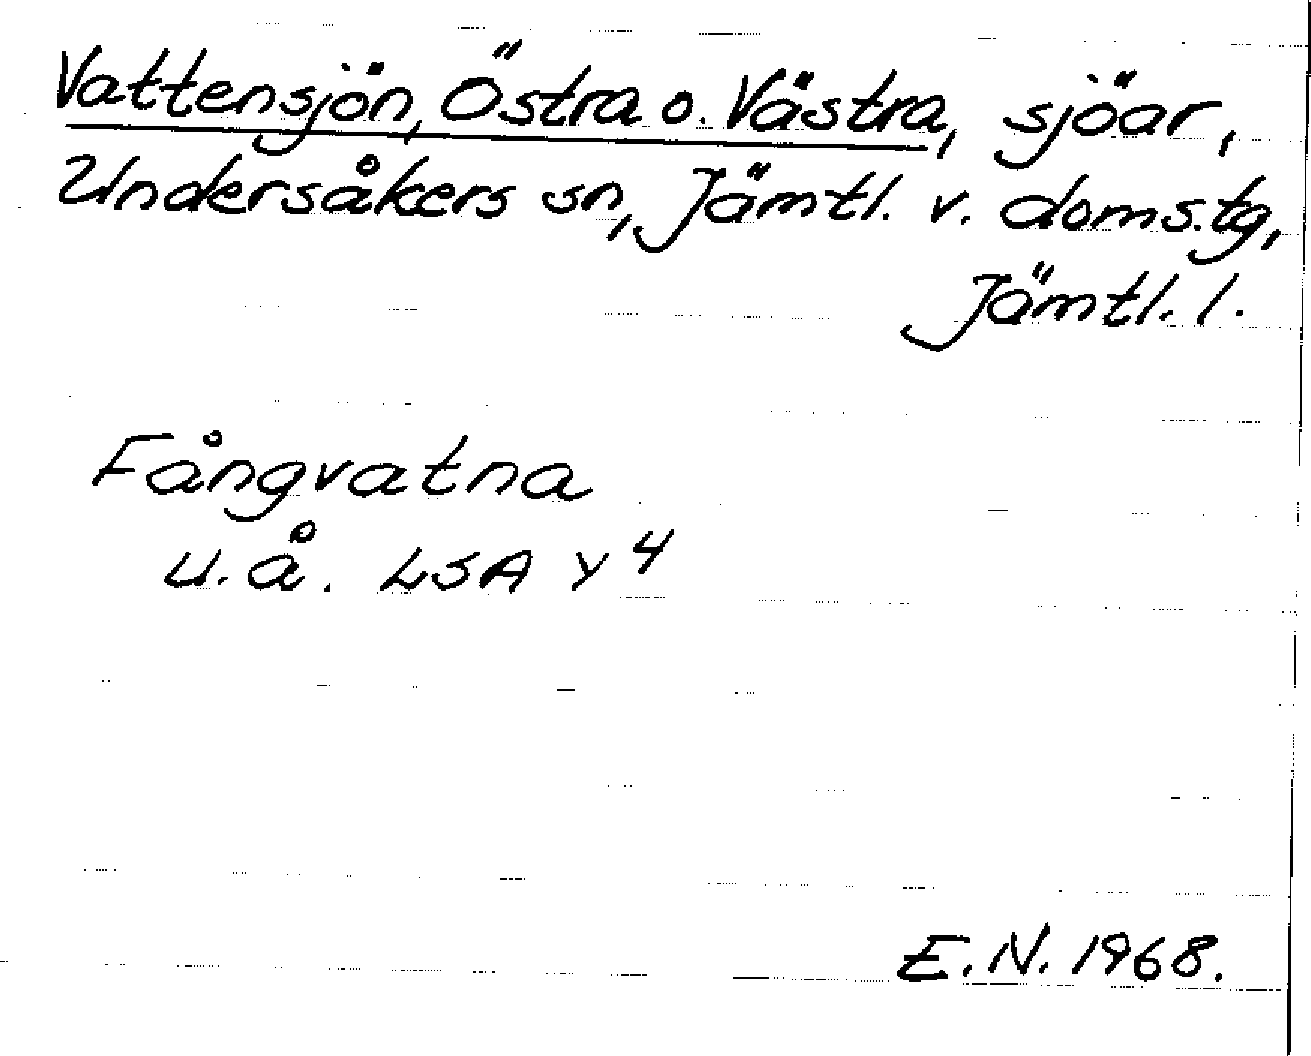 Vattensjön, Östra o. Västra, sjöar,
Undersåkers sn, Jämtl. v. doms.tg,
Jämtl. l.
Fångvatna
u.å. LSA Y 4
E.N. 1968.